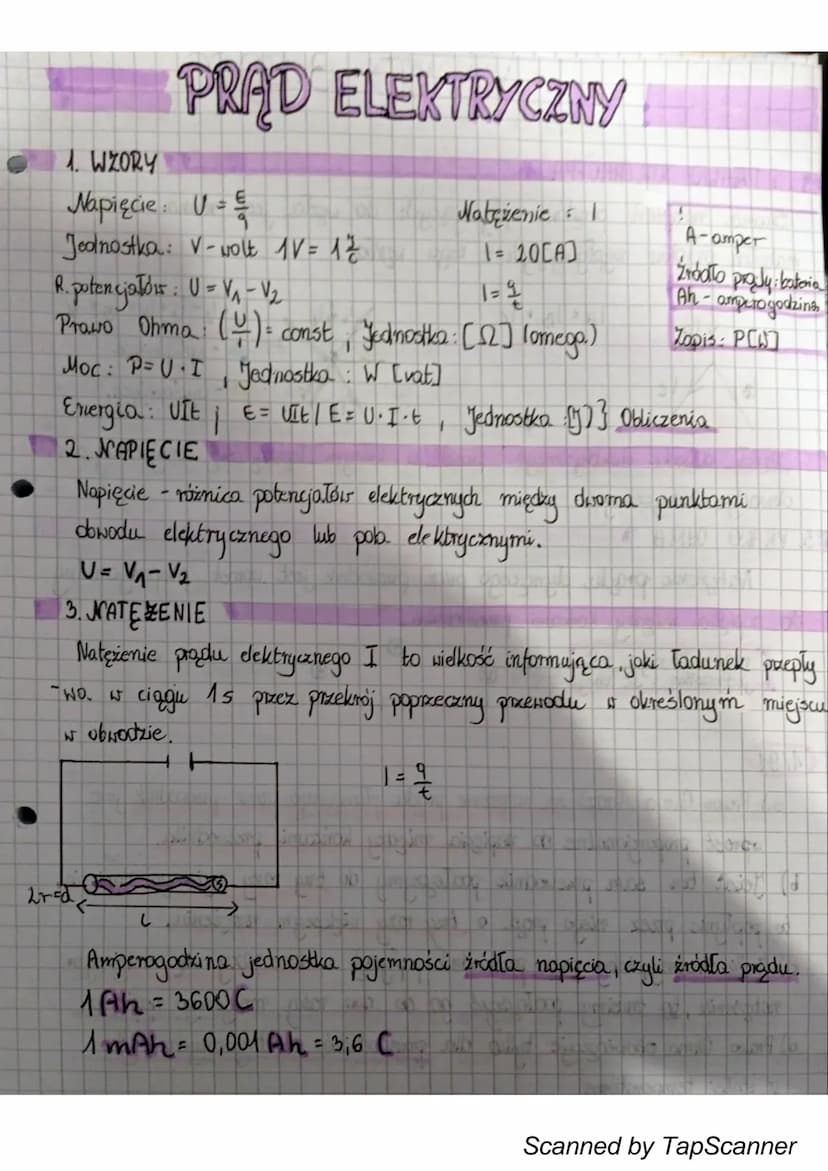 PRĄD ELEKTRYCZNY
1. WZORY
Napięcie: U = E/q
Jednostka: V - wolt 1V = 1 J/C
R. potencjałów: U = V₁ - V₂
Natężenie : I
I = 20[A]
I = q/t
!
A - amper
źródło prądu: bateria
Ah - amperogodzina
Zapis: P[W]
Prawo Ohma: (U/I) = const, Jednostka: [Ω] (omega)
Moc: P = U · I, Jednostka : W [vat]
Energia: UIt ; E = UIt / E = U · I · t, Jednostka :[J] } Obliczenia
2. NAPIĘCIE
Napięcie - różnica potencjałów elektrycznych między dwoma punktami
obwodu elektrycznego lub pola elektrycznymi.
U = V₁ - V₂
3. NATĘŻENIE
Natężenie prądu elektrycznego I to wielkość informująca, jaki ładunek przepły
-wa w ciągu 1s przez przekrój poprzeczny przewodu w określonym miejscu
w obwodzie.
I = q/t
2r=d
S
L
Amperogodzina jednostka pojemności źródła napięcia, czyli źródła prądu.
1 Ah = 3600 C
1 mAh = 0,001 Ah = 3,6 C
Scanned by TapScanner